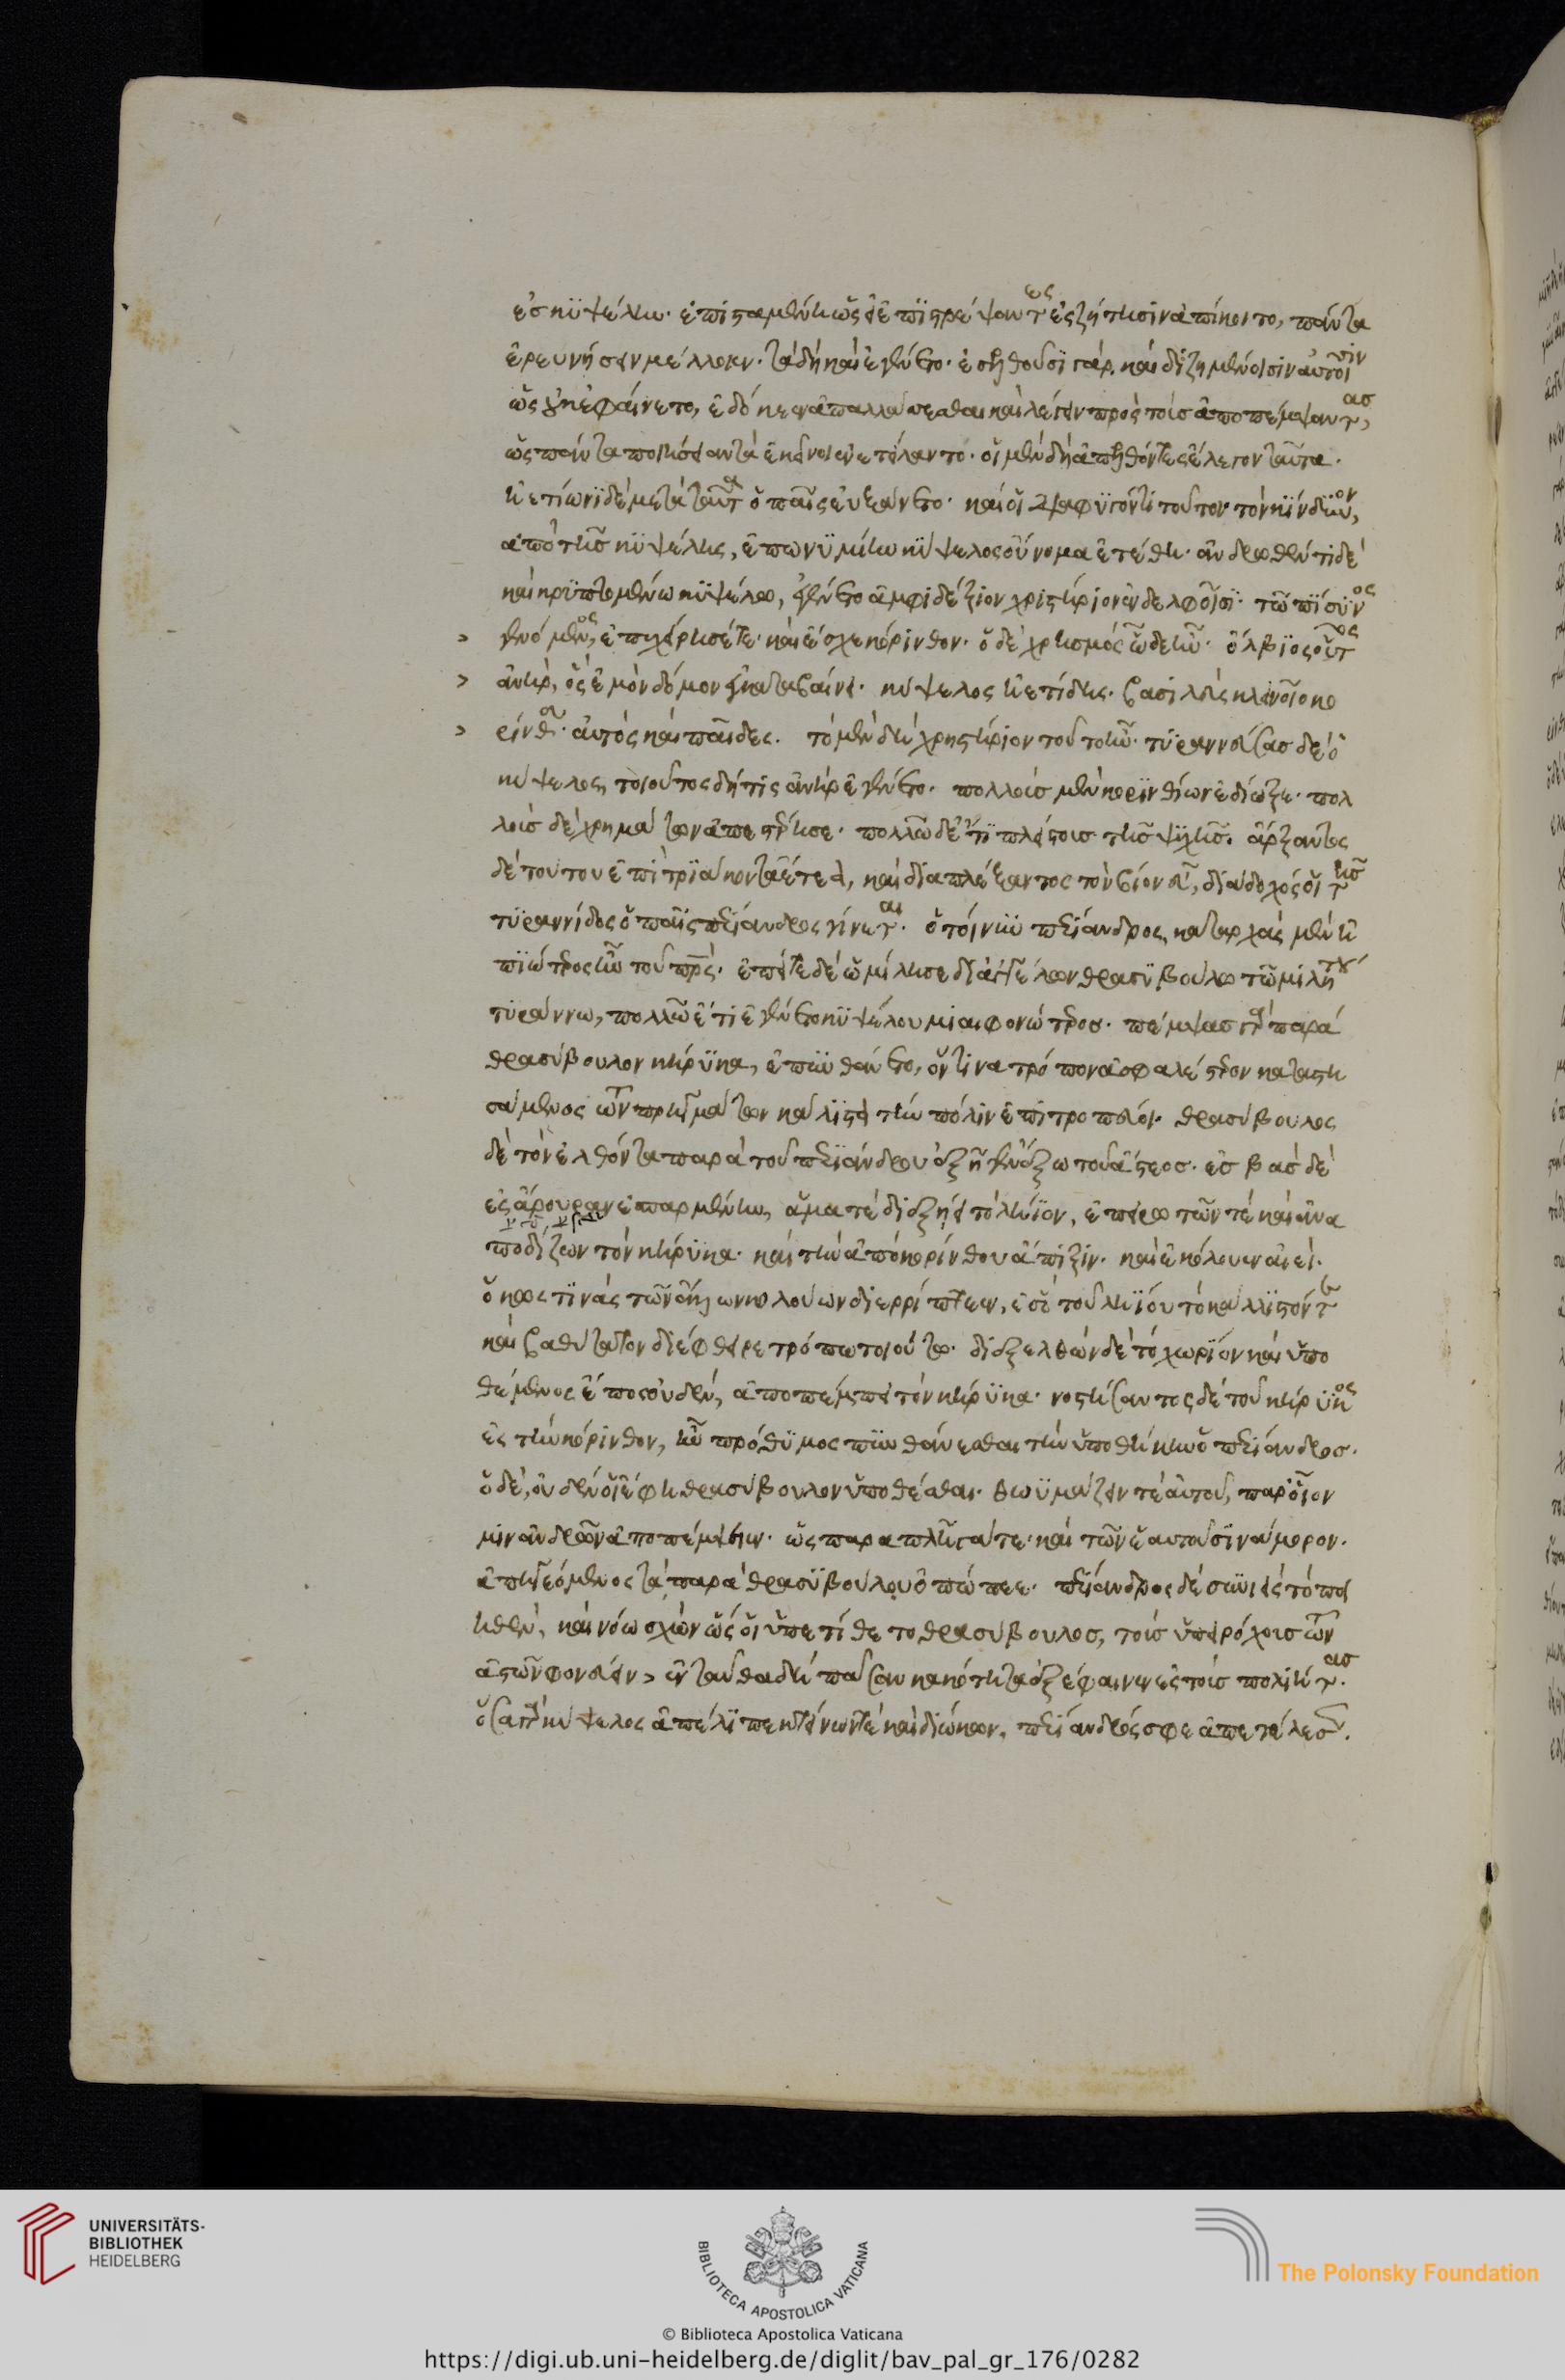 ἐς κυψέλην· ἐπισταμένη ὡς εἰ ἐπιστρέψαντες ἐς ζήτησιν ἀπίκοιντο, πάντα
ἐρευνήσειν μέλλοιεν. τὰ δὴ καὶ ἐγένετο. ἐλθοῦσι γὰρ καὶ διζημένοισιν αὐτοῖσιν
ὡς οὐκ ἐφαίνετο, ἐδόκεεν ἀπαλλάσσεσθαι καὶ λέγειν πρὸς τοὺς ἀποπέμψαντας,
ὡς πάντα ποιήσειαν τὰ ἐκεῖνοι ἐνετείλαντο. οἱ μὲν δὴ ἀπελθόντες ἔλεγον ταῦτα.
ἠετίωνι δὲ μετὰ ταῦτα ὁ παῖς εὐξάνετο· καί οἱ διαφυγόντι τοῦτον τὸν κίνδυνον,
ἀπὸ τῆς κυψέλης, ἐπωνυμίην κύψελος οὔνομα ἐτέθη. ἀνδρωθέντι δὲ
καὶ χρυπτομένω κυψέλω, ἐγένετο ἀμφιδέξιον χρηστήριον ἐν δελφοῖσι. τῶ πίσυνος
γενόμενος, ἐπεχείρησέ τε· καὶ ἔσχε κόρινθον. ὁ δὲ χρησμὸς ὧδε ἦν. ὄλβιος οὗτος
> ἀνὴρ, ὃς ἐμὸν δόμον ἐγκαταβαίνει. κύψελος ἠετίδης. βασιλεὺς κλεινοῖο κο
> ρίνθου· αὐτὸς καὶ παῖδες. τὸ μὲν δὴ χρηστήριον τοῦτο ἦν. τυραννεύσας δὲ ὁ
κύψελος, τοιοῦτος δή τις ἀνὴρ ἐγένετο. πολλοὺς μὲν κορινθίων ἐδίωξε. πολ
λοὺς δὲ χρημάτων ἀπεστέρησε. πολλῶ δὲ ἔτι πλείστους τῆς ψυχῆς. ἄρξαντος
δὲ τούτου ἐπὶ τριάκοντα ἔτεα, καὶ διαπλέξαντος τὸν βίον εὖ, διάδοχός οἱ τῆς
τυραννίδος ὁ παῖς περίανδρος γίνεται. ὁ τοίνυν περίανδρος, καταρχὰς μὲν ἠ
πιώτερος ἦν τοῦ πατρός. ἐπείτε δὲ ὡμίλησε δι' ἀγγέλων θρασυβούλω τῶ μιλήτου
τυράννω, πολλῶ ἔτι ἐγένετο κυψέλου μιαιφονώτερος. πέμψας γὰρ παρὰ
θρασύβουλον κήρυκα, ἐπυνθάνετο, ὅντινα τρόπον ἀσφαλέστερον καταστη
σάμενος τῶν πρηγμάτων κάλλιστα τὴν πόλιν ἐπιτροπεύοι. θρασύβουλος
δὲ τὸν ἐλθόντα παρὰ τοῦ περιάνδρου ἐξῆγεν ἔξω τοῦ ἄστεος. ἐσβὰς δὲ
ἐς ἄρουραν ἐσπαρμένην, ἅμα τε διεξήει τὸ λήϊον, ἐπειρωτῶν τε καὶ ἀνα
ποδίζων τὸν κήρυκα. καὶ τὴν ἀπὸ κορίνθου ἄπιξιν. καὶ ἐκόλουεν αἰεί.
ὅκως τινὰς τῶν ἀσταχύων κολούων διερρίπτεεν, ἐς ὃ τοῦ ληίου τὸ κάλλιστόν τε
καὶ βαθύτατον διέφθειρε τρόπω τοιούτω. διεξελθὼν δὲ τὸ χωρίον καὶ ὑπο
θέμενος ἔπος οὐδὲν, ἀποπέμπει τὸν κήρυκα. νοστήσαντος δὲ τοῦ κήρυκος
ἐς τὴν κόρινθον, ἦν πρόθυμος πυνθάνεσθαι τὴν ὑποθήκην ὁ περίανδρος.
ὁ δὲ, οὐδέν οἱ ἔφη θρασύβουλον ὑποθέσθαι. θωυμάζειν τε αὐτοῦ, παρ' οἷόν
μιν ἄνδρα ἀποπέμψειεν. ὡς παραπλῆγά τε· καὶ τῶν ἑαυτοῦ σινάμωρον.
ἀπηγεόμενος τὰ παρὰ θρασυβούλου ὀπώπεε. περίανδρος δὲ συνιεὶς τὸ ποι
ηθὲν, καὶ νόω σχὼν ὥς οἱ ὑπετίθετο θρασύβουλος, τοὺς ὑπειρόχους τῶν
ἀστῶν φονεύειν, ἐνταῦθα δὴ πᾶσαν κακότητα ἐξέφαινεν ἐς τοὺς πολιήτας.
ὅσα γὰρ κύψελος ἀπέλιπε κτείνων τε καὶ διώκων, περίανδρός σφε ἀπετέλεσεν.
UNIVERSITÄTS-
BIBLIOTHEK
HEIDELBERG
BIBLIOTECA APOSTOLICA VATICANA
The Polonsky Foundation
© Biblioteca Apostolica Vaticana
https://digi.ub.uni-heidelberg.de/diglit/bav_pal_gr_176/0282